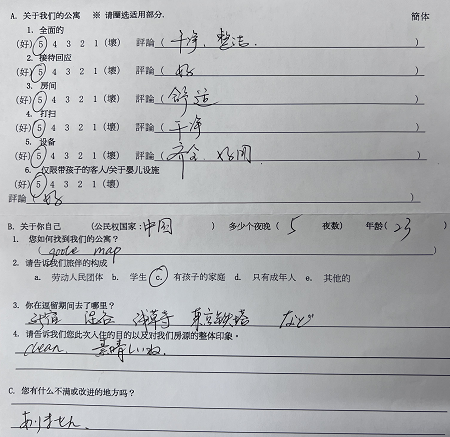 A. 关于我们的公寓 ※ 请圈选适用部分. 簡体
1. 全面的
(好) 5 4 3 2 1 (壞) 評論 ( 干净, 整洁. )
2. 接待回应
(好) 5 4 3 2 1 (壞) 評論 ( 好 )
3. 房间
(好) 5 4 3 2 1 (壞) 評論 ( 舒适 )
4. 打扫
(好) 5 4 3 2 1 (壞) 評論 ( 干净 )
5. 设备
(好) 5 4 3 2 1 (壞) 評論 ( 齐全, 好用 )
6. 仅限带孩子的客人/关于婴儿设施
(好) 5 4 3 2 1 (壞)
評論 ( 好 )
B. 关于你自己 (公民权国家: 中国 ) 多少个夜晚 ( 5 夜数) 年龄 ( 23 )
1. 您如何找到我们的公寓？
( goole map )
2. 请告诉我们旅伴的构成
a. 劳动人民团体 b. 学生 c. 有孩子的家庭 d. 只有成年人 e. 其他的
3. 你在逗留期间去了哪里？
涩谷 浅草寺 東京铁塔 など
4. 请告诉我们您此次入住的目的以及对我们房源的整体印象。
clean. 素晴しいね.
C. 您有什么不满或改进的地方吗？
ありません.